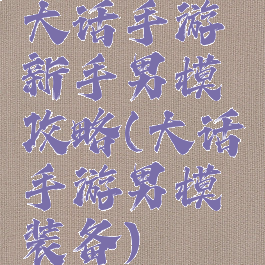 大话手游
新手男模
攻略(大话
手游男模
装备)